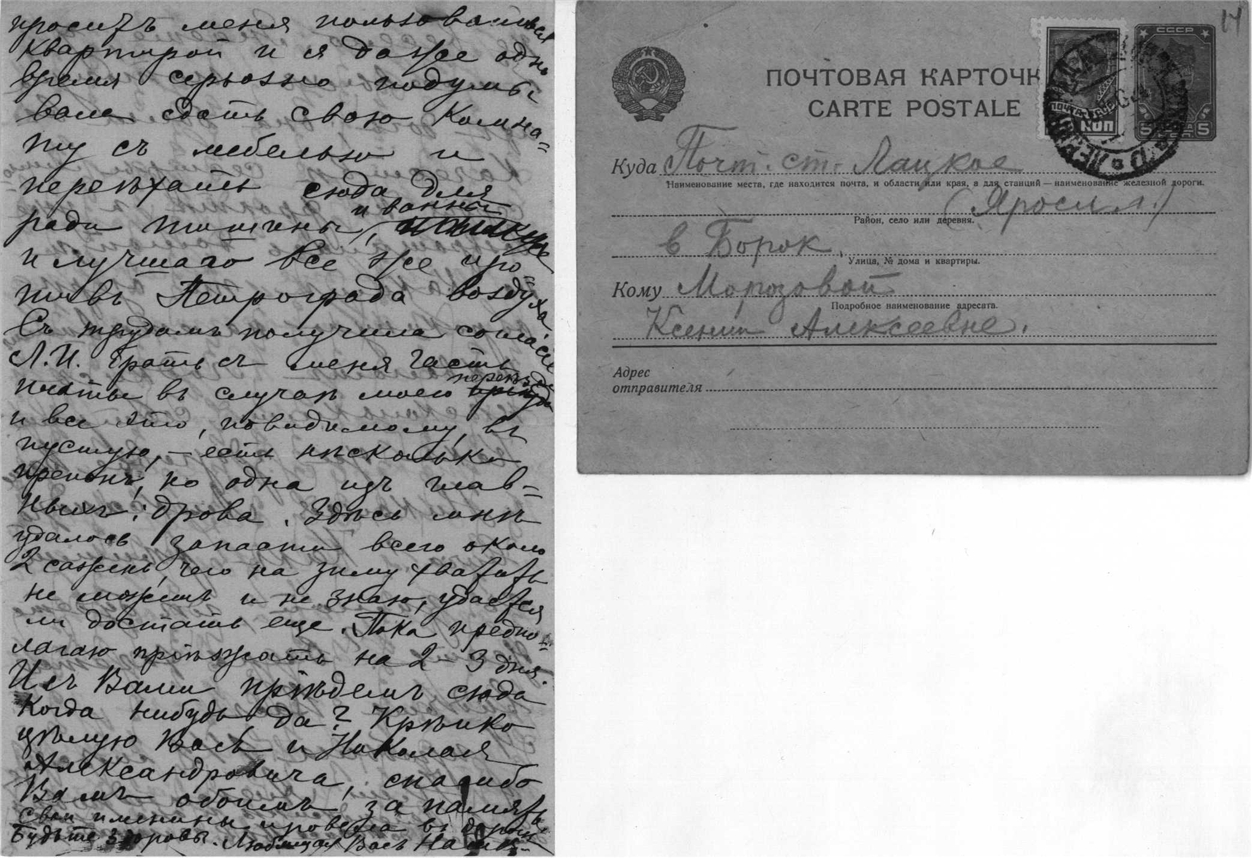 просить меня пользоваться
квартирой и я даже одно
время серьозно подумы-
вала сдать свою комна-
ту съ мебелью и
переѣхать сюда для
ради тишины, и ванной
и лучшаго все же про-
тивъ Петрограда воздуха.
Съ трудомъ получила согласіе
Л.И. брать съ меня часть
платы въ случаѣ моего переѣзда
и все это, повидимому, въ
пустую, – есть нѣсколько
препонъ, но одна изъ глав-
ныхъ: дрова. Здѣсь мнѣ
удалось запасти всего около
2 сажень, чего на зиму хватать
не можетъ и не знаю, удастся
ли достать еще. Пока предпо-
лагаю пріѣзжать на 2 – 3 дня.
И съ Вами пріѣдемъ сюда
когда нибудь да? Крѣпко
цѣлую Васъ и Николая
Александровича, спасибо
Вамъ обоимъ за память.
Свои именины провела въ
Будьте здоровы. Любящая Васъ
14
ПОЧТОВАЯ КАРТОЧК
CARTE POSTALE
СССР
5 5
Куда Почт. ст. Лацкое
Наименование места, где находится почта, и области или края, а для станций — наименование железной дороги.
(Яросл.)
Район, село или деревня.
в Борок,
Улица, № дома и квартиры.
Кому Морозовой
Подробное наименование адресата.
Ксении Алексеевне.
Адрес
отправителя